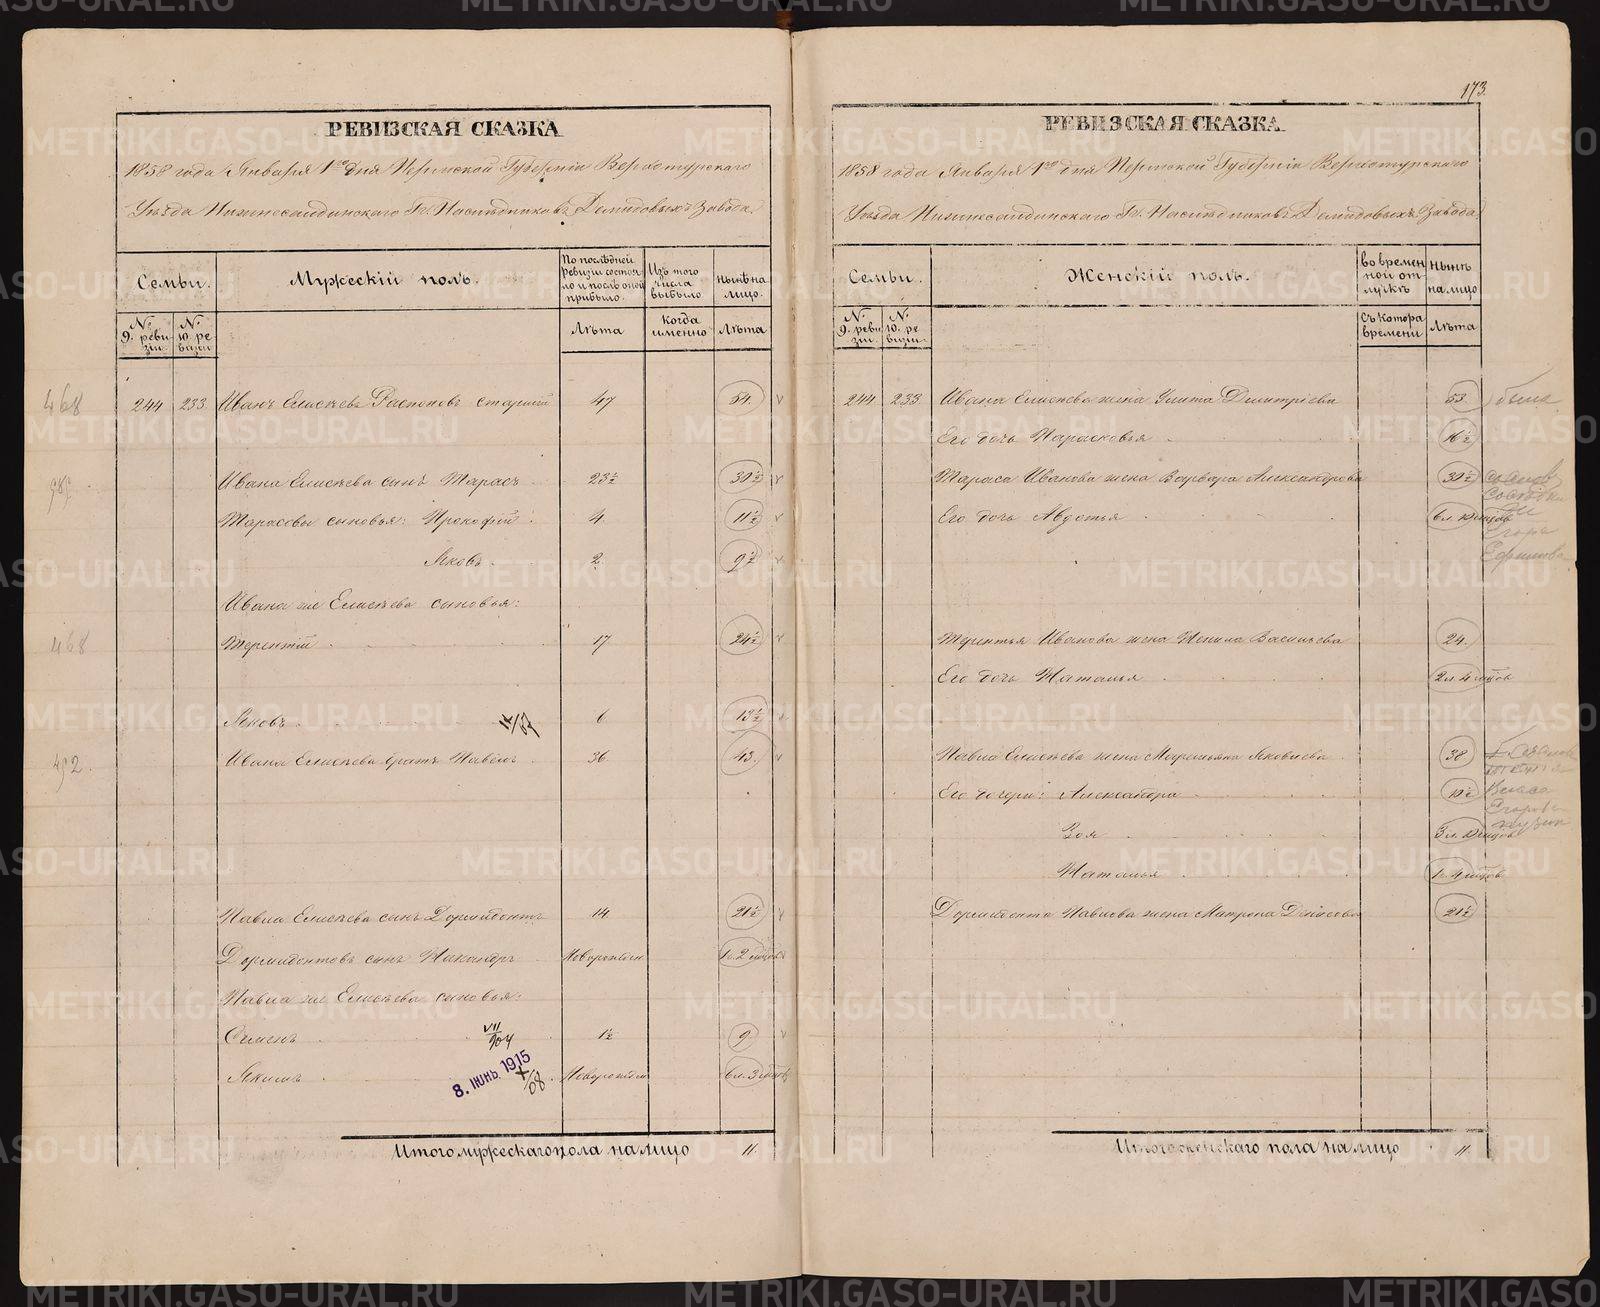 173
РЕВИЗСКАЯ СКАЗКА
1858 года Января 1го дня Пермской Губерніи Верхотурскаго
Уѣзда Нижнесалдинскаго Гг. Наслѣдниковъ Демидовыхъ Завода.
Семьи.
Мужескій полъ.
По послѣдней ревизіи состояло и послѣ оной прибыло.
Изъ того числа выбыло
Нынѣ на лицо.
№ 9. ревизіи.
№ 10. ревизіи
Лѣта
Когда именно
Лѣта
468 244 233 Иванъ Елисѣевъ Распоповъ старшій 47 54.
Ивана Елисѣева сынъ Тарасъ 23½ 30½
Тарасовы сыновья: Прокофій 4. 11½
Яковъ 2 9½
Ивана же Елисѣева сыновья:
468 Терентій 17 24½
Яковъ IX/07 6 13½
492. Ивана Елисѣева братъ Павелъ 36 43.
Павла Елисѣева сынъ Дормидонтъ 14 21½
Дормидонтовъ сынъ Никандръ Новорожден 1г. 2 мѣсяцовъ
Павла же Елисѣева сыновья:
Сѣменъ VII/904 1½ 9
8. ІЮНЬ 1915
Якимъ X/08 Новорожден 6л. 3 мѣсяцовъ
Итого мужескаго пола на лицо 11.
РЕВИЗСКАЯ СКАЗКА
1858 года Января 1го дня Пермской Губерніи Верхотурскаго
Уѣзда Нижнесалдинскаго Гг. Наслѣдниковъ Демидовыхъ Завода
Семьи.
Женскій полъ.
Во временной отлучкѣ
Нынѣ на лицо
№ 9. ревизіи.
№ 10. ревизіи
Съ котора времени
Лѣта
244 233. Ивана Елисѣева жена Улита Дмитріева 53.
Его дочь Парасковья 16½
Тараса Иванова жена Варвара Александрова 30½
Его дочь Авдотья
Егора
Терентья Иванова жена Ненила Васильева 24.
Его дочь Наталья 2л 4 мѣсяцов
Павла Елисѣева жена Маремьяна Яковлева 38
Его дочери: Александра
Зоя
Наталья 1г. 4 мѣсяцов
Дормидонта Павлова жена Матрона Денисова 21½
Итого женскаго пола на лицо 11.
METRIKI.GASO-URAL.RU